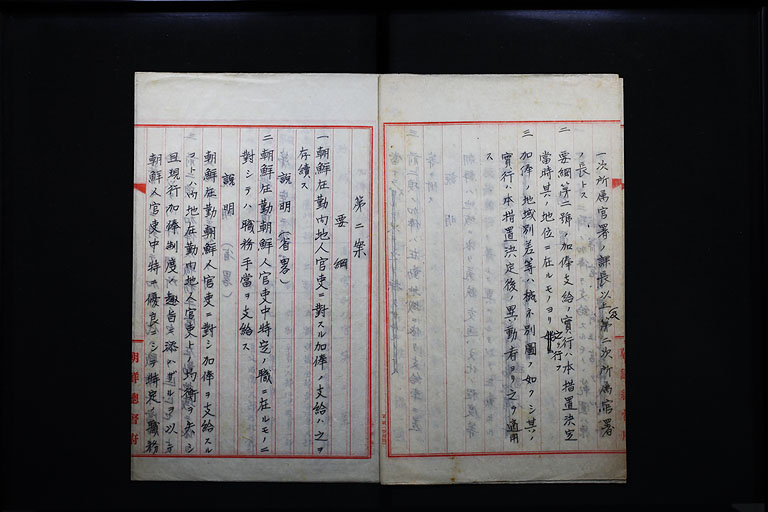 一次所属官署ノ課長以上及第二次所属官署
ノ長トス
二 要綱第二號ノ加俸支給ノ實行ハ本措置決定
當時其ノ地位ニ在ルモノヨリ之ヲ行フ
三 加俸ノ地域別差等ハ概ネ別圖ノ如クシ其ノ
實行ハ本措置決定後ノ異動者ヨリ之ヲ適用
ス
第二案
要綱
一 朝鮮在勤内地人官吏ニ對スル加俸ノ支給ハ之ヲ
存續ス
説明(省略)
二 朝鮮在勤朝鮮人官吏中特定ノ職ニ在ルモノニ
對シテハ職務手當ヲ支給ス
説明(省略)
朝鮮在勤朝鮮人官吏ニ對シ加俸ヲ支給スル
コトハ内地在勤内地人官吏トノ均衡ヲ失シ
且現行加俸制度ノ趣旨ニ添ハザルヲ以テ
朝鮮人官吏中特ニ優良ニシテ特定ノ職務
朝鮮總督府